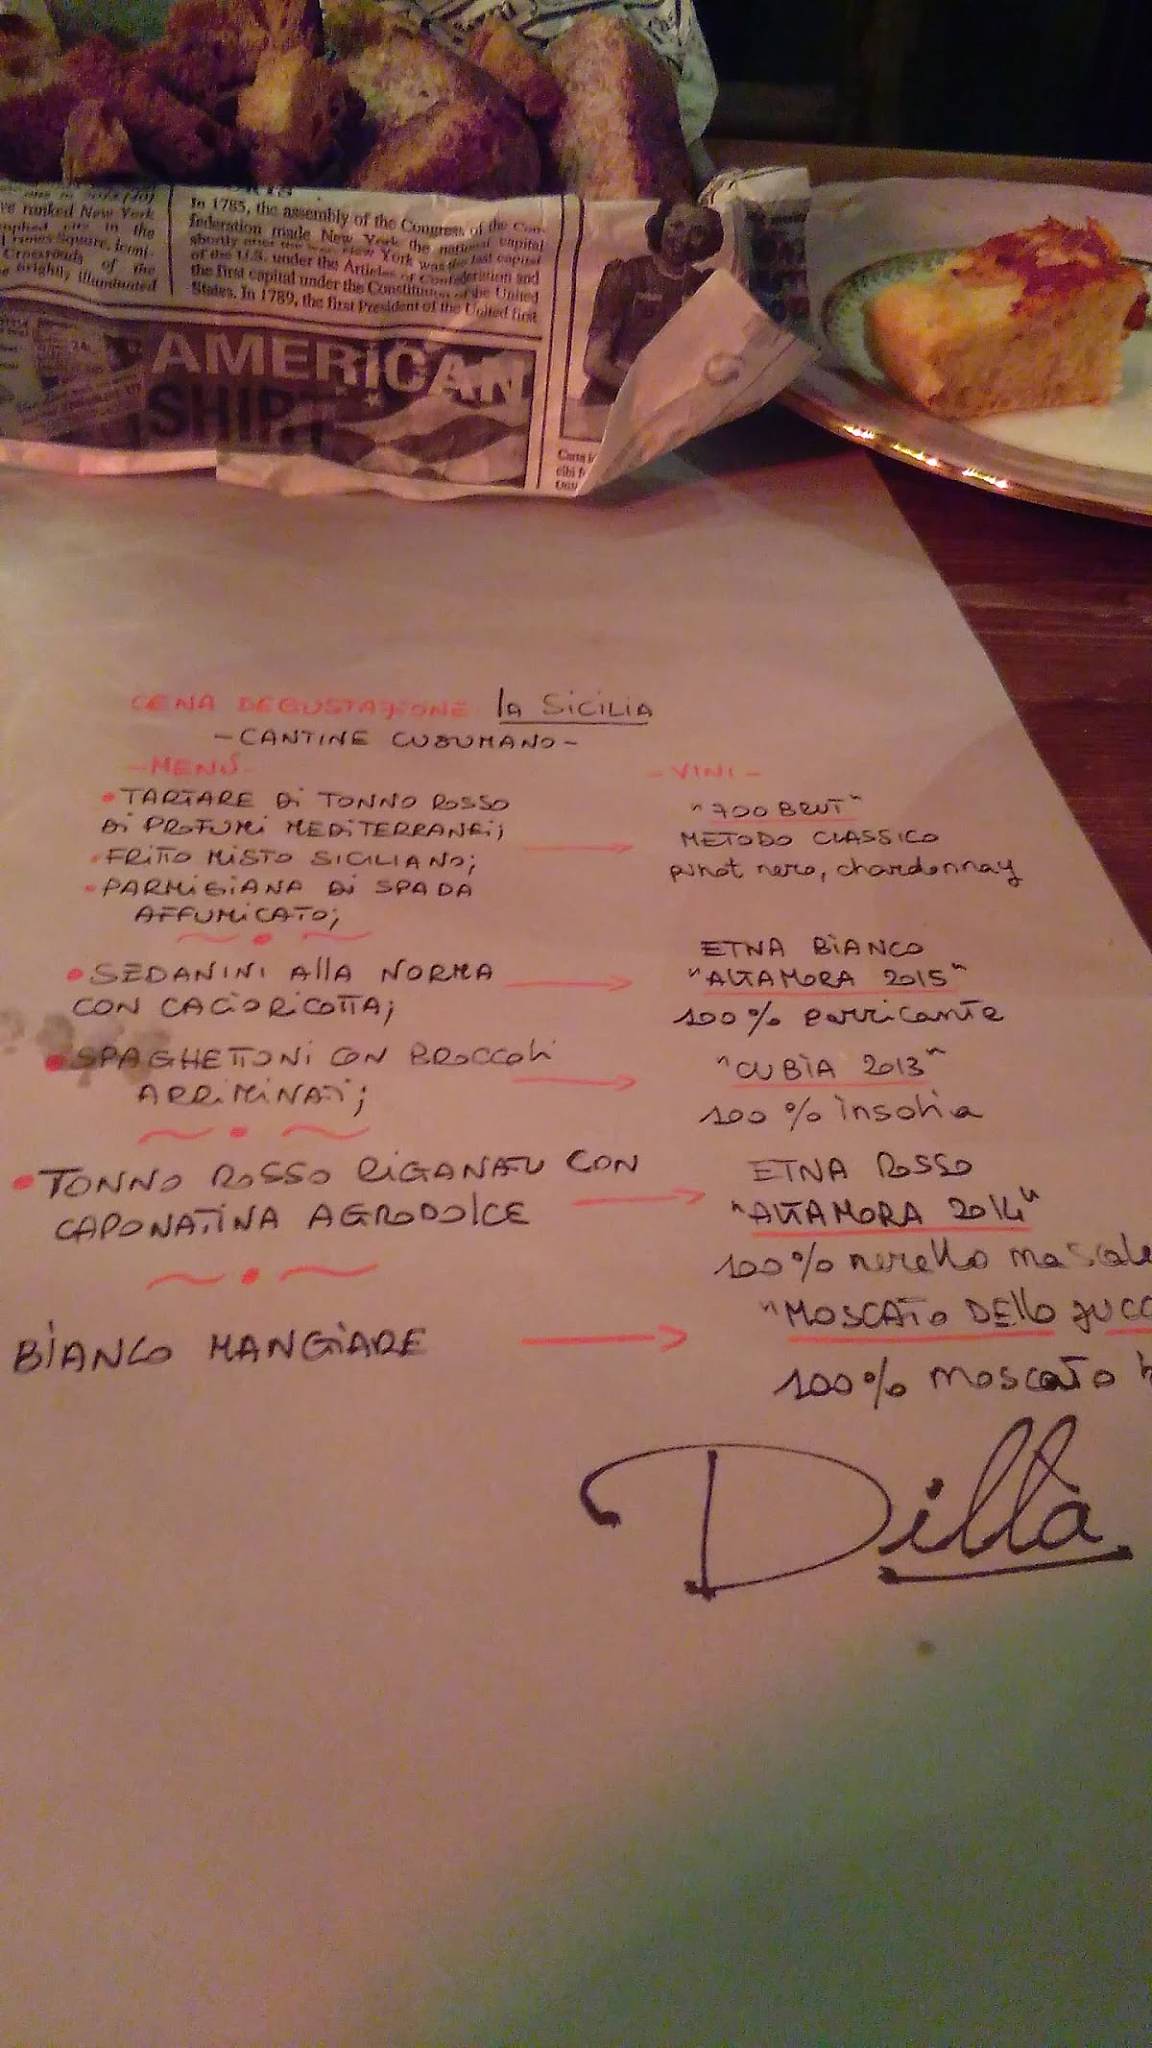 ve ranked New York
in the
Times Square, iconi-
Crossroads of the
brightly illuminated
In 1785, the assembly of the Congress of the Con-
federation made New York the national capital
shortly after the war. New York was the last capital
of the U.S. under the Articles of Confederation and
the first capital under the Constitution of the United
States. In 1789, the first President of the United first
AMERiCAN
SHIRT
CENA DEGUSTAZIONE la SiCiLIA
- CANTINE CUSUMANO -
- MENÙ -
• TARTARE Di TONNO ROSSO
Ai PROFUMi MEDITERRANEi;
• FRITTO MISTO SICILIANO;
• PARMiGIANA Di SPADA
AFFUMiCATO;
• SEDANINI AllA NORMA
CON CACIORiCOTTA;
• SPAGHETTONi CON BROCCOLi
ARRiMiNATi;
• TONNO ROSSO RiGANATU CON
CAPONATiNA AGRODOlCE
BiANCO MANGiARE
- VINI -
"700 BRUT"
METODO CLASSICO
pinot nero, chardonnay
ETNA BiANCO
"ALTAMORA 2015"
100% carricante
"CUBÌA 2013"
100% insolia
ETNA ROSSO
"ALTAMORA 2014"
100% nerello mascale
"MOSCATO DEllO ZUCC
100% moscato b
Dillà